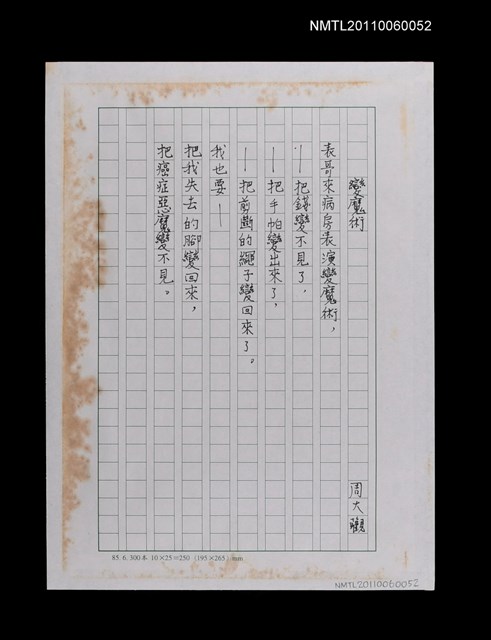 NMTL20110060052
變魔術
周大觀
表哥來病房表演變魔術，
——把錢變不見了，
——把手帕變出來了，
——把剪斷的繩子變回來了。
我也要——
把我失去的腳變回來，
把癌症惡魔變不見。
85. 6. 300本 10×25=250 (195×265) mm
NMTL20110060052